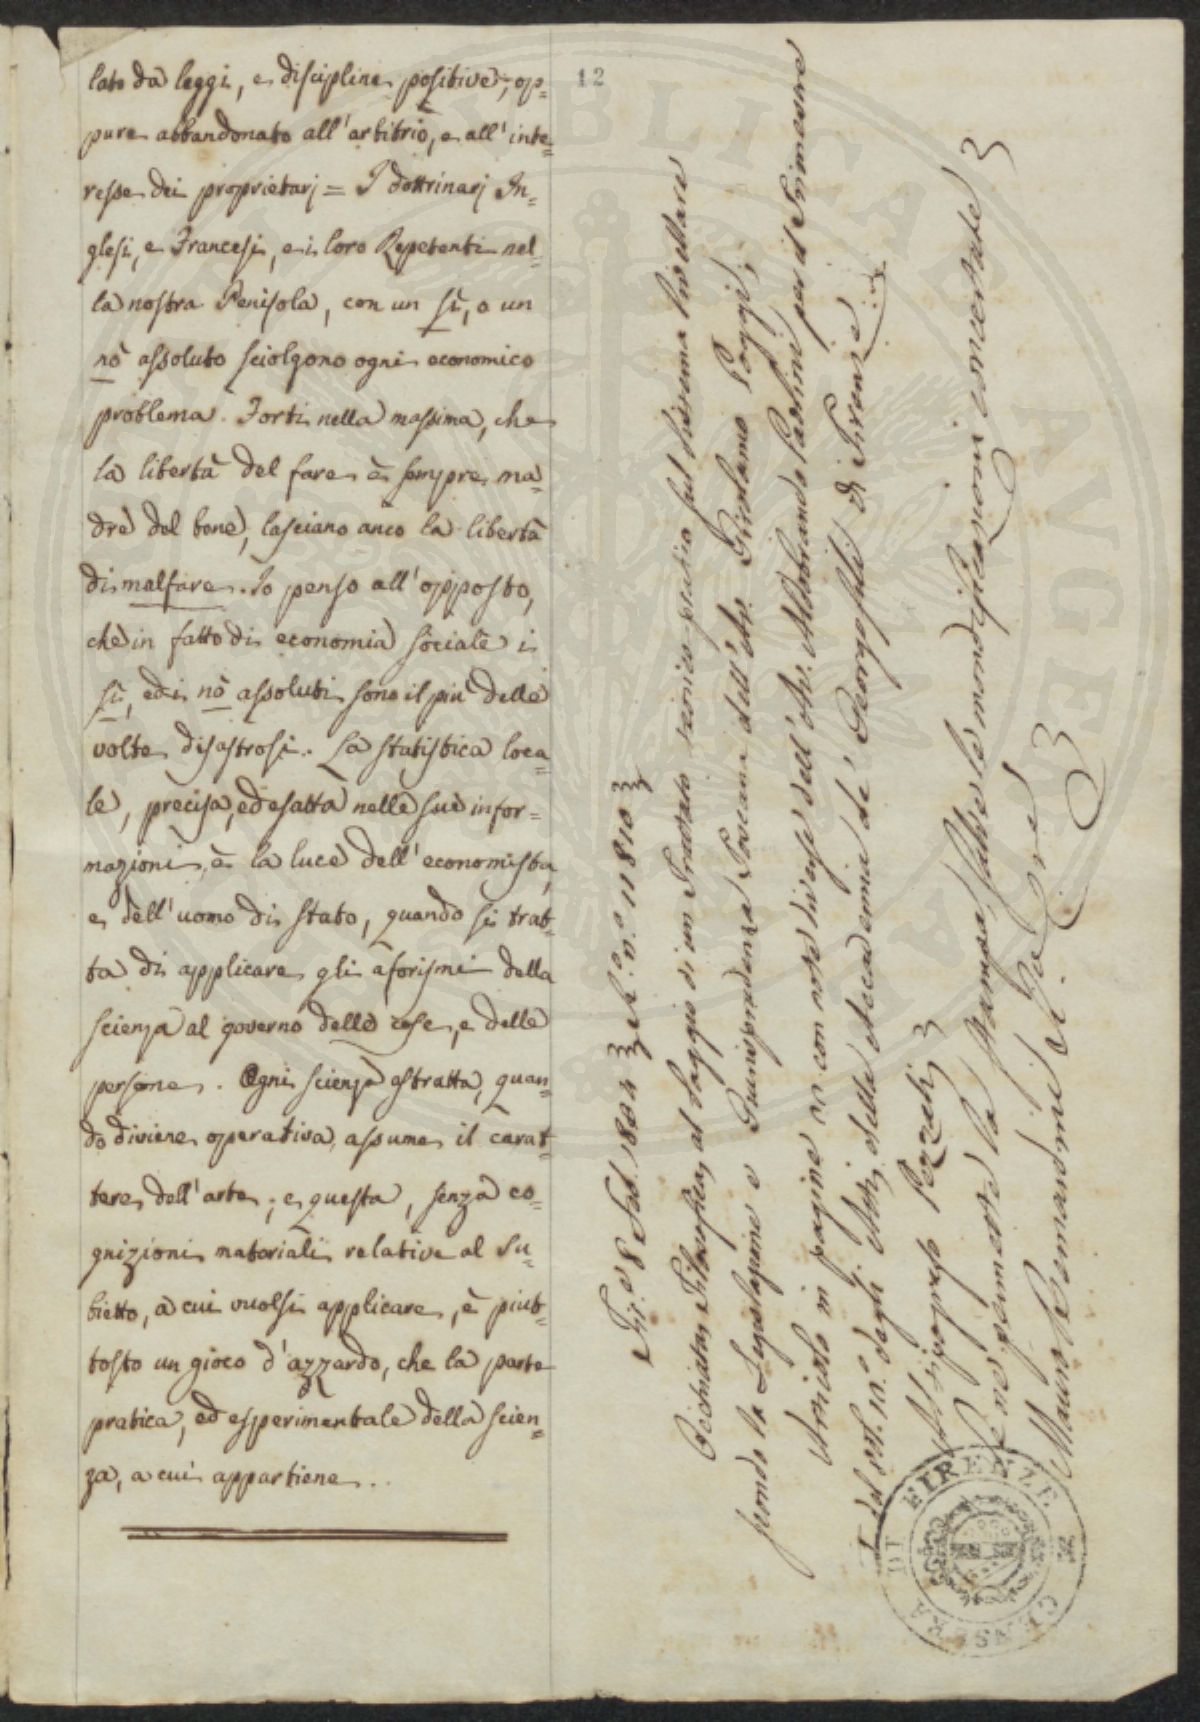 12
lato da leggi, e discipline positive, op=
pure abbandonato all'arbitrio, e all'inte=
resse dei proprietarj = I dottrinarj In=
glesi, e Francesi, e i loro Repetenti nel=
la nostra Penisola, con un sì, o un
nò assoluto sciolgono ogni economico
problema. Forti nella massima, che
la libertà del fare è sempre ma=
dre del bene, lasciano anco la libertà
di malfare. Io penso all'opposto,
che in fatto di economia sociale i
sì, ed i nò assoluti sono il più delle
volte disastrosi. La statistica loca=
le, precisa, ed esatta nelle sue infor=
mazioni, è la luce dell'economista,
e dell'uomo di stato, quando si trat=
ta di applicare gli aforismi della
scienza al governo delle cose, e delle
persone. Ogni scienza astratta, quan=
do diviene operativa, assume il carat=
tere dell'arte; e questa, senza co=
gnizioni materiali relative al su=
bietto, a cui vuolsi applicare, è piut=
tosto un gioco d'azzardo, che la parte
pratica, ed esperimentale della scien=
za, a cui appartiene.
1810
Occhiata Filosofica al Saggio di un Trattato teorico pratico sul sistema livellare
secondo la Legislazione e Giurisprudenza Toscana dell'Av. Girolamo Poggi,
Articolo in pagine 12 con note divise dell'Av. Aldobrando Paolini per il
degli Atti della Accademia de' Georgofili di Firenze
Al tipografo Pezzati
Se ne permette la stampa salve le modificazioni concertate
Mauro Bernardini
CENSURA DI FIRENZE